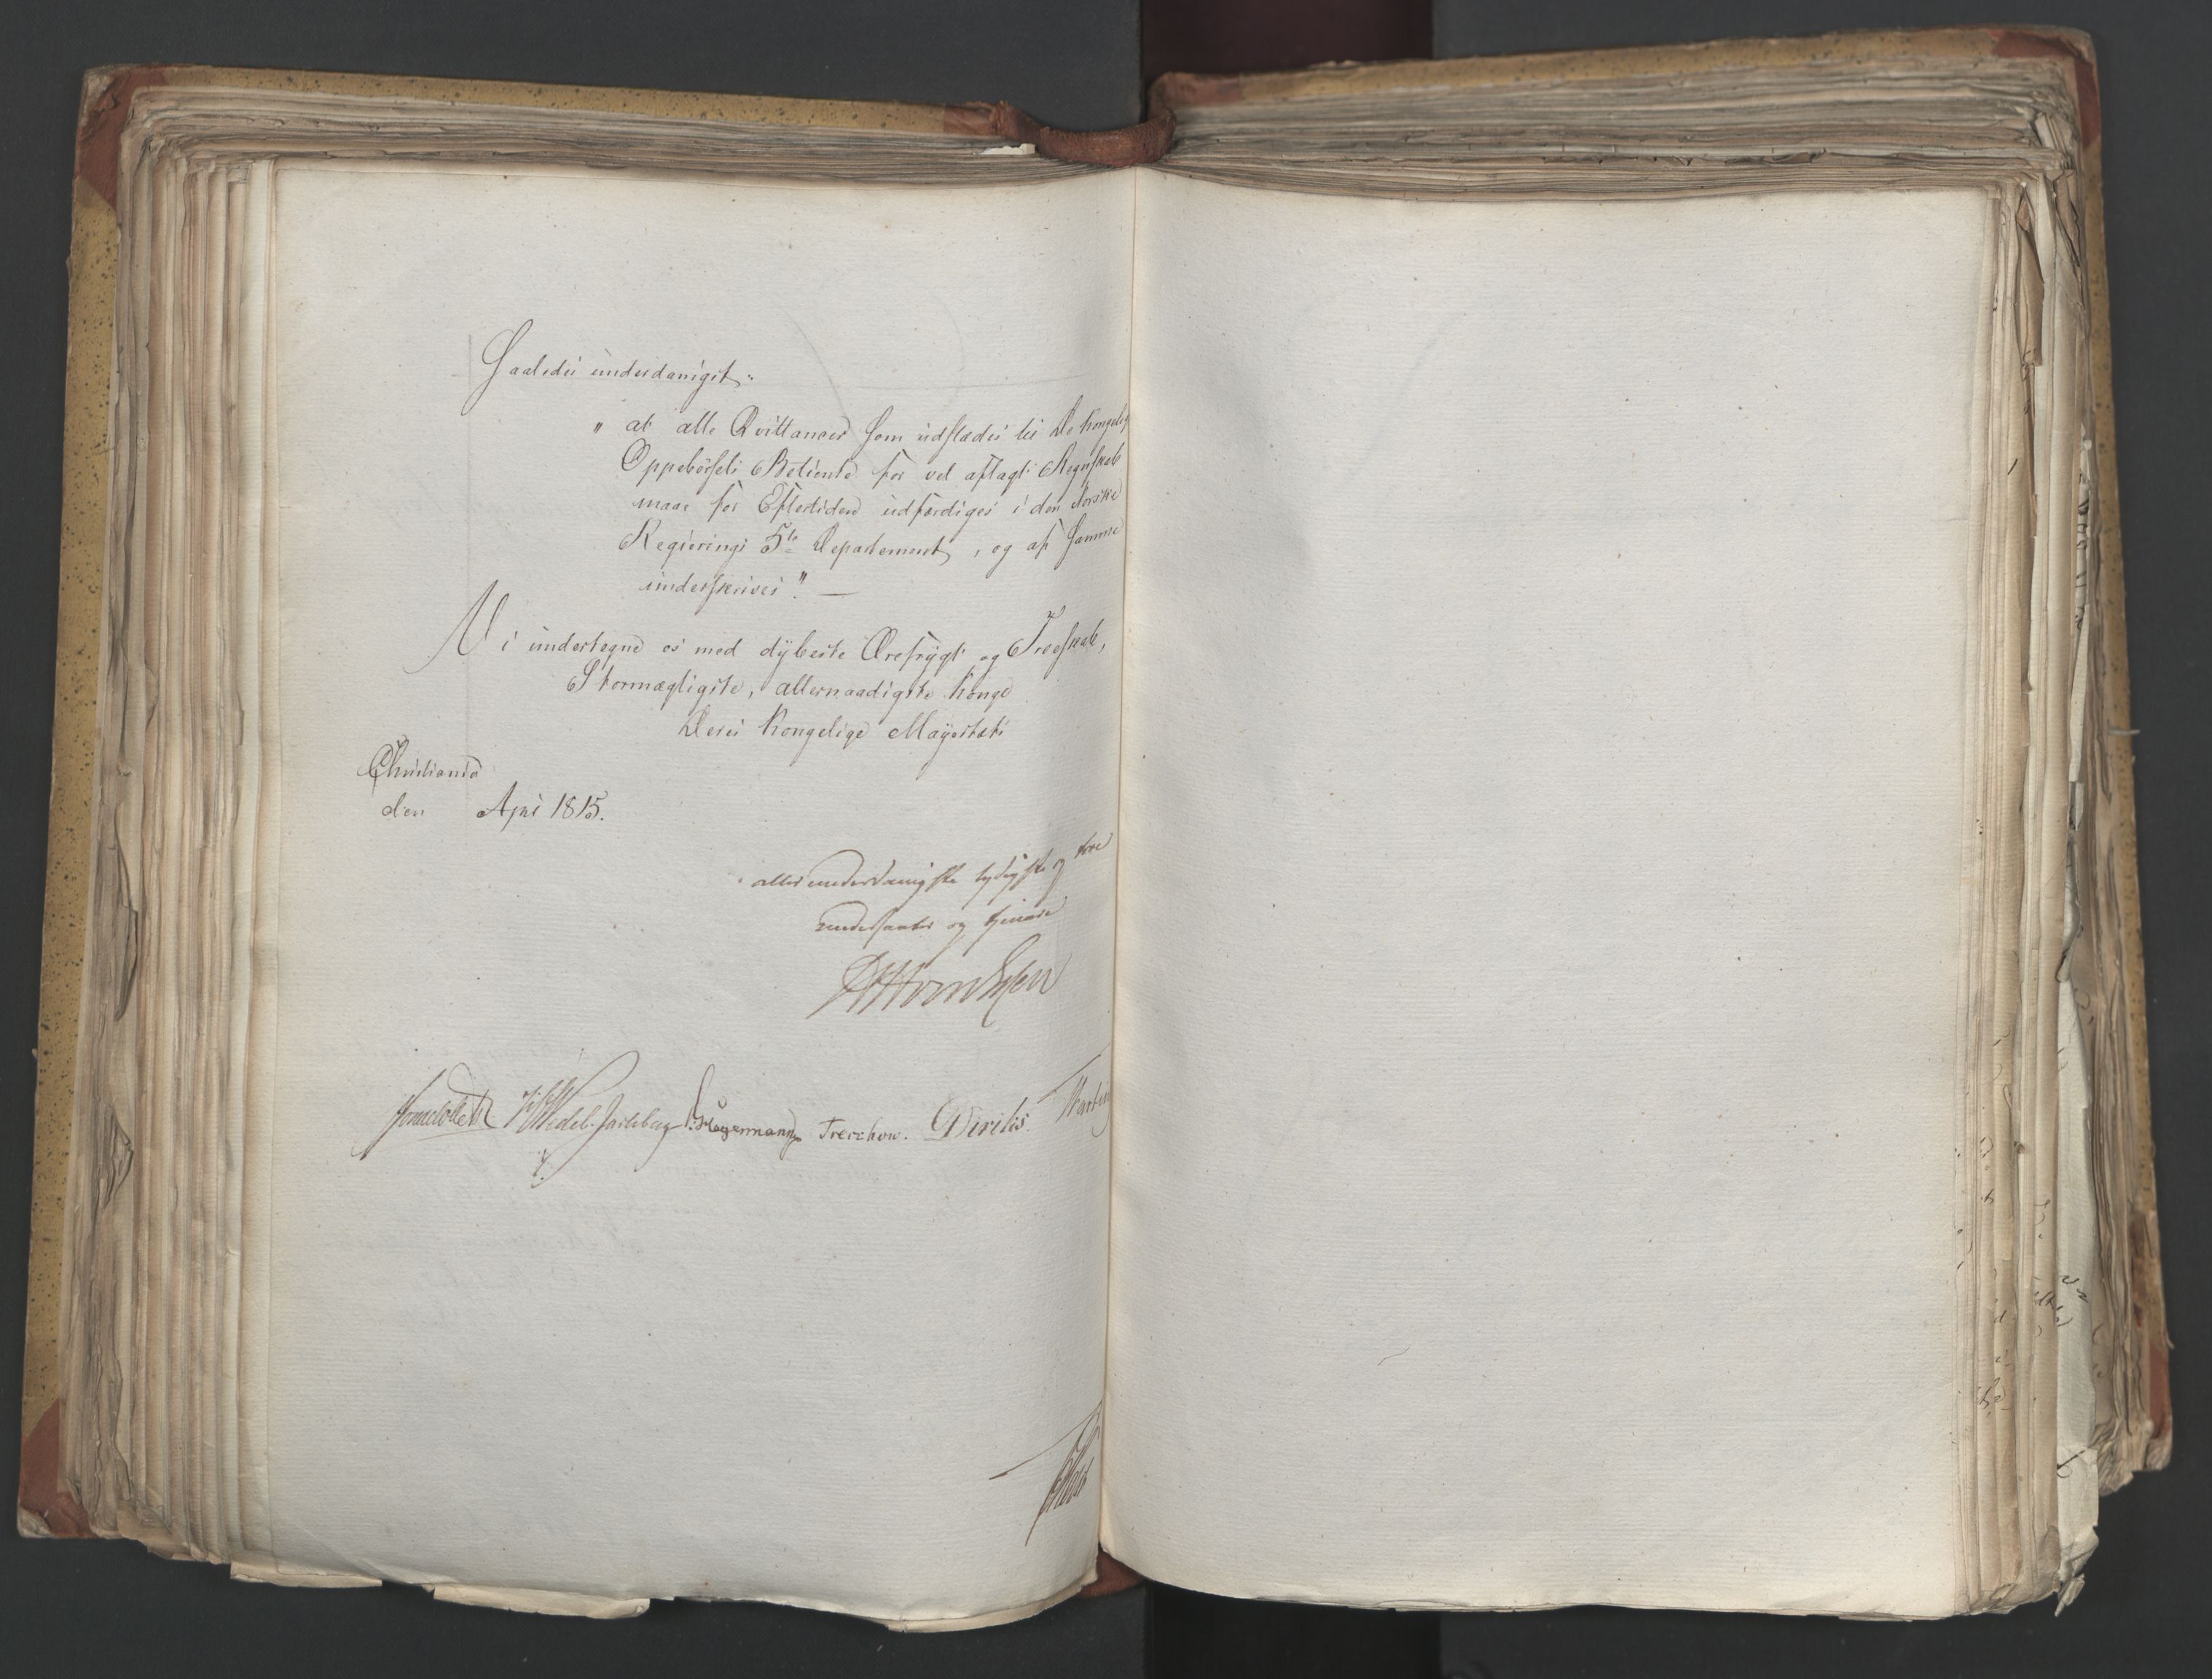 Saaledes underdanigst.
" at alle Qvittancer som udstædes til De Kongelige
Oppebörsels Betiente for vel aflagt Regnskab
maae for Eftertiden udfærdiges i den Norske
Regierings 5te Departement, og af samme
underskrives". —
Vi undertegne os med dybeste Ærefrygt og Troeskab,
Stormægtigste, allernaadigste Konge
Deres Kongelige Mayestæts
Christiania
den April 1815.
allerunderdanigste lydigste og troe
undersaatter og tjenere
Sommerhielm Wedel-Jarlsberg Hegermann Treschow. Diriks.
Holst